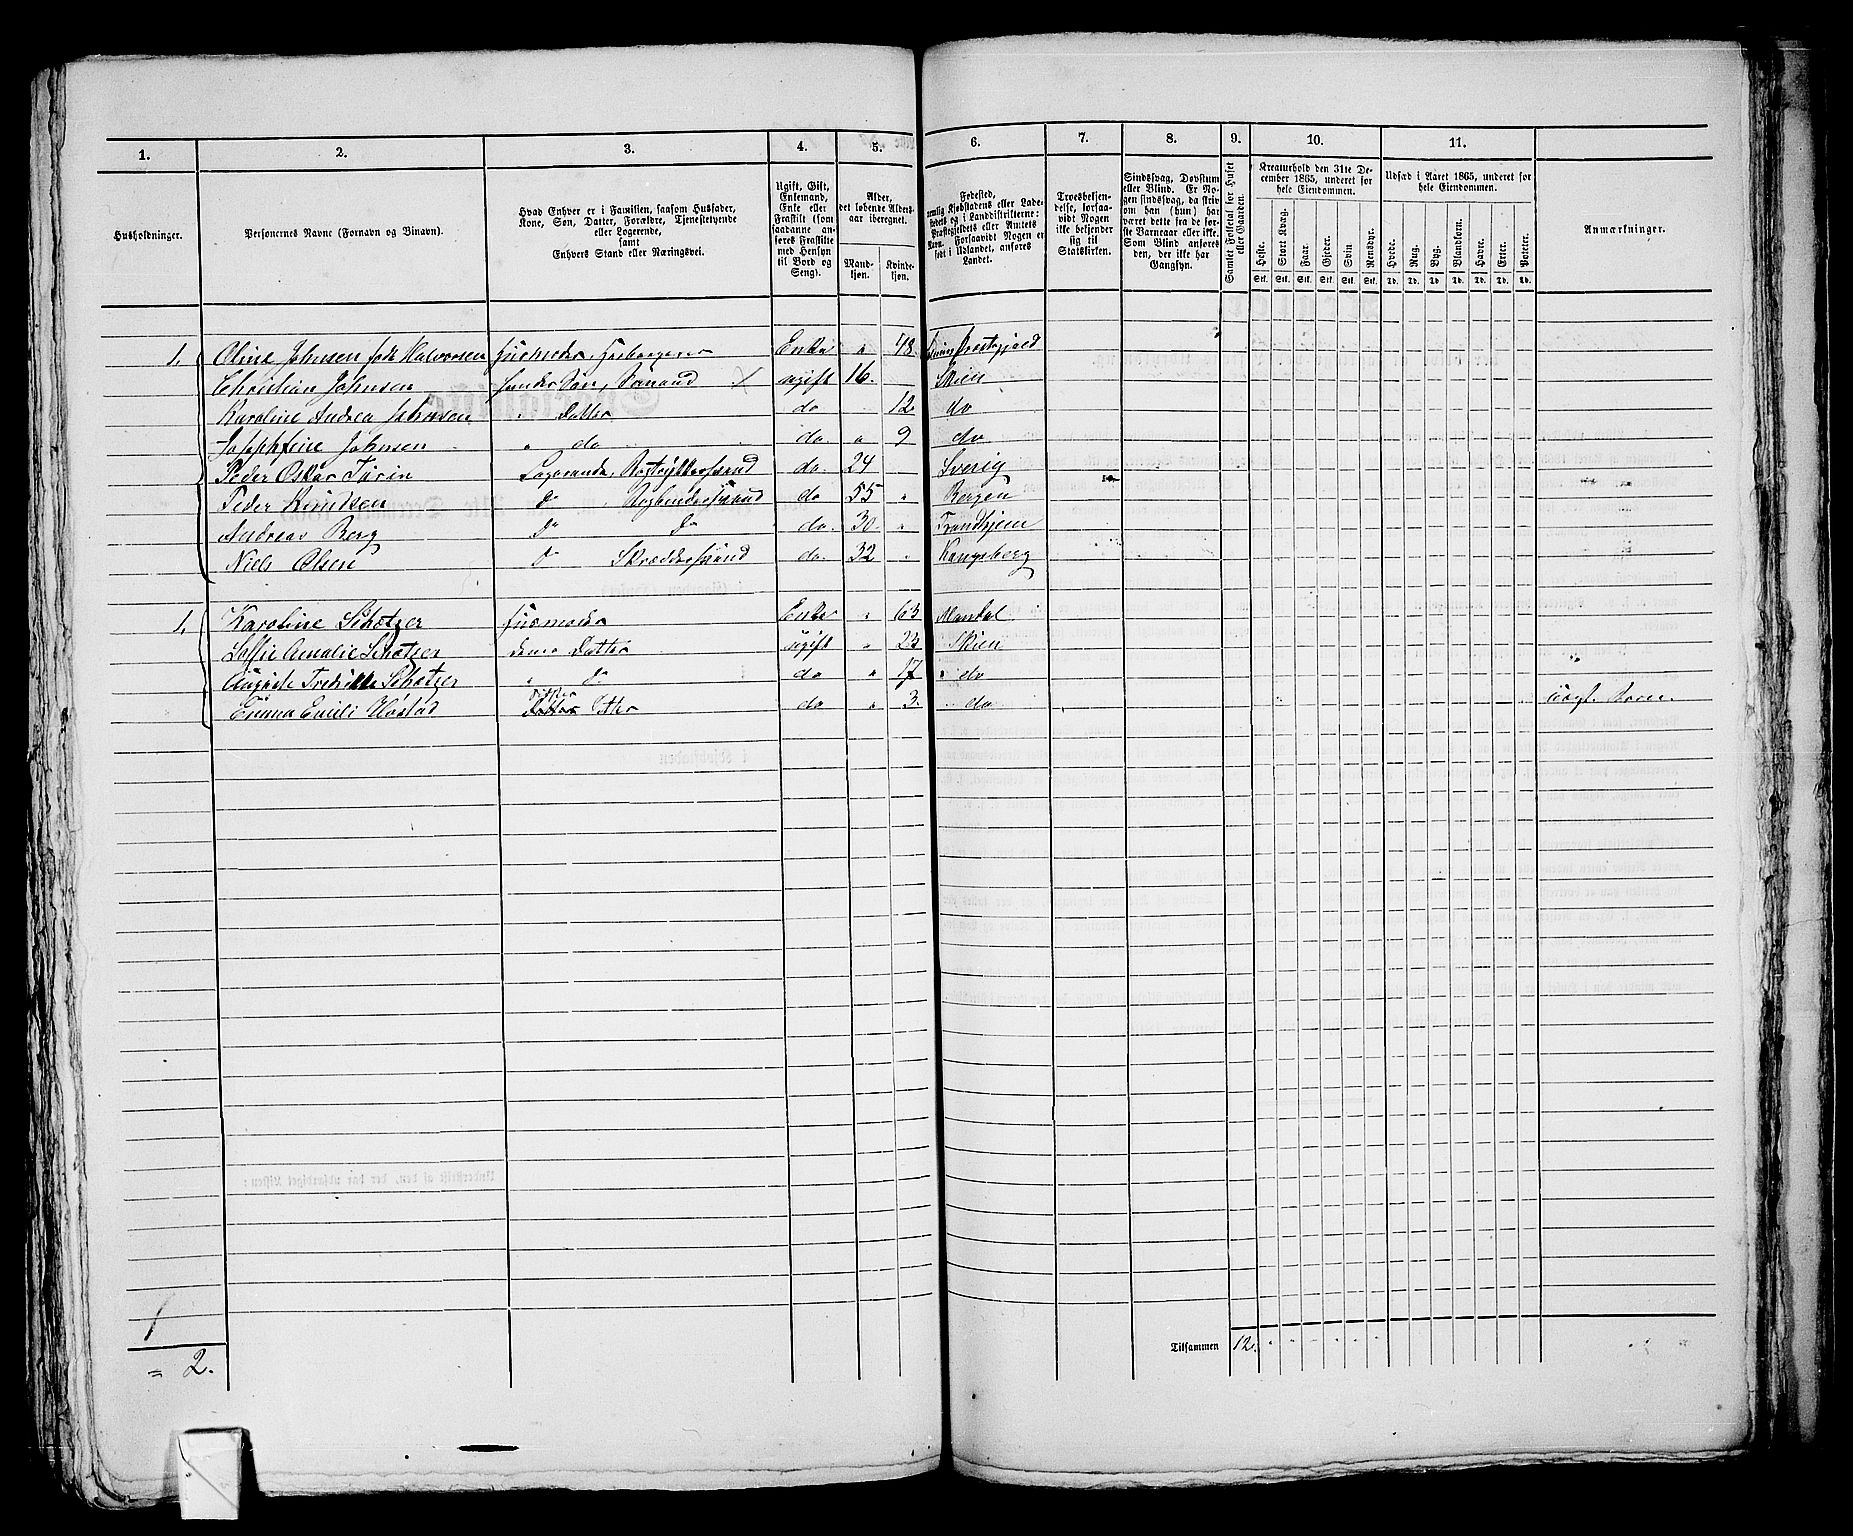 1. 2. 3. 4. 5. 6. 7. 8. 9. 10. 11.
Husholdninger.
Personernes Navne (Fornavn og Binavn).
Hvad Enhver er i Familien, saasom Husfader,
Kone, Søn, Datter, Forældre, Tjenestetyende
eller Logerende,
samt
Enhvers Stand eller Næringsvei.
Ugift, Gift,
Enkemand,
Enke eller
Fraskilt (som
saadanne an-
føres Fraskilte
med Hensyn
til Bord og
Seng).
Alder,
det løbende Alders-
aar iberegnet.
Mand-
kjøn.
Kvinde-
kjøn.
Fødested,
nemlig Kjøbstadens eller Lade-
stedets og i Landdistrikterne:
Præstegjeldets eller Amtets
Navn. Forsaavidt Nogen er
født i Udlandet, anføres
Landet.
Troesbekjen-
delse, forsaa-
vidt Nogen
ikke bekjender
sig til
Statskirken.
Sindssvag, Døvstum
eller Blind. Er No-
gen sindssvag, da skriv
om han (hun) har
været dette fra de før-
ste Barneaar eller ikke.
Som Blind anføres
den, der ikke har
Gangsyn.
Samlet Folketal for Huset
eller Gaarden.
Kreaturhold den 31te De-
cember 1865, underet for
hele Eiendommen.
Heste. Stort Kvæg. Faar. Gjeder. Svin Rensdyr.
Stk. Stk. Stk. Stk. Stk. Stk.
Udsæd i Aaret 1865, underet for
hele Eiendommen.
Hvede. Rug. Byg. Blandkorn. Havre. Erter. Poteter.
Td. Td. Td. Td. Td. Td. Td.
Anmærkninger.
1. Oline Johnsen født Halvorsen Husmoder, Enke " 48
Christian Johnsen hendes Søn, ugift 16. Skien
Karoline Andrea Johnsen " Datter do 12 do
Josephine Johnsen " do do " 9 do
Peder Oskar Logerende, do. 24 Sverig
Peder Knudsen do do 55 " Bergen
Andreas Berg do do do. 30 " Trondhjem
Niels Olsen do Skræddersvend do. 32 " Kongsberg
1. Karoline Schøtzer Husmoder Enke " 63 Mandal
Amalie Schøtzer Datter ugift " 23 Skien
Schøtzer " do do " 17 " do
Emma do " 3. " do
1
= 2.
Tilsammen 12.